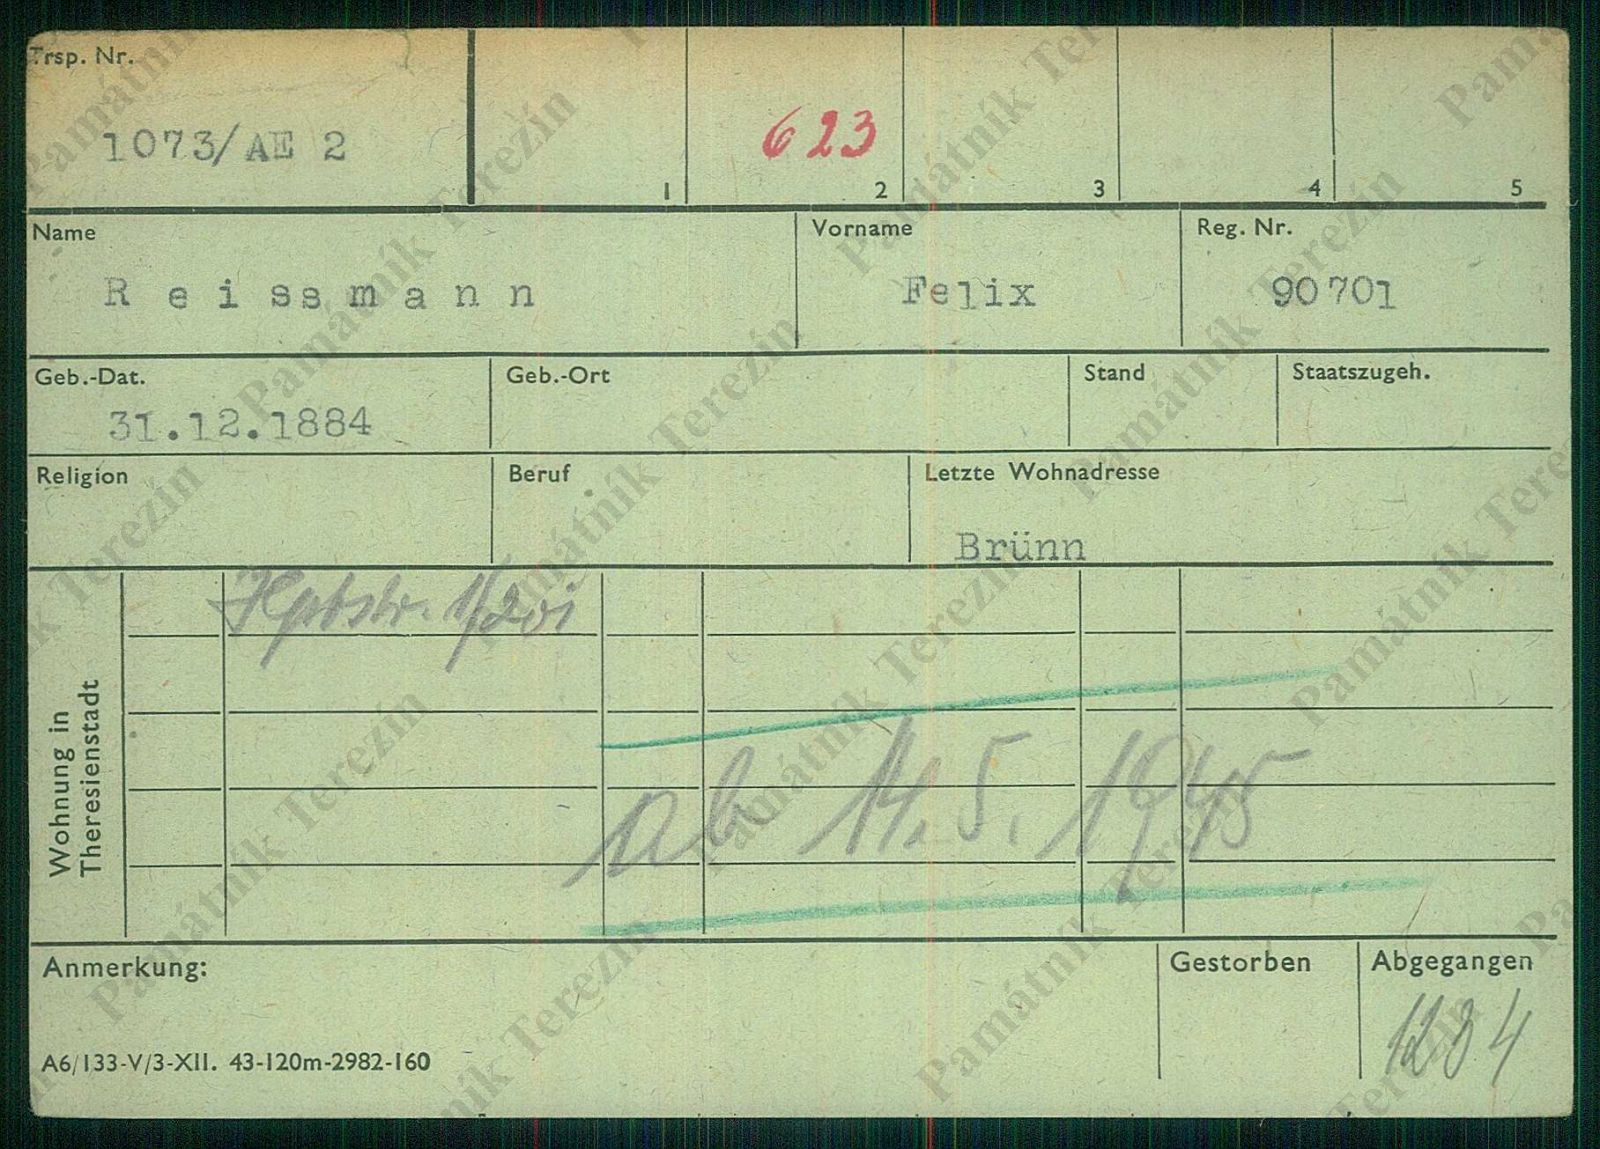 Trsp. Nr.
1073/AE 2
623
1 2 3 4 5
Name Vorname Reg. Nr.
Reissmann Felix 90701
Geb.-Dat. Geb.-Ort Stand Staatszugeh.
31.12.1884
Religion Beruf Letzte Wohnadresse
Brünn
Hptstr. 1/
Wohnung in
Theresienstadt
ab 5. 1945
Anmerkung: Gestorben Abgegangen
1234
A6/133-V/3-XII. 43-120m-2982-160
Památník Terezín